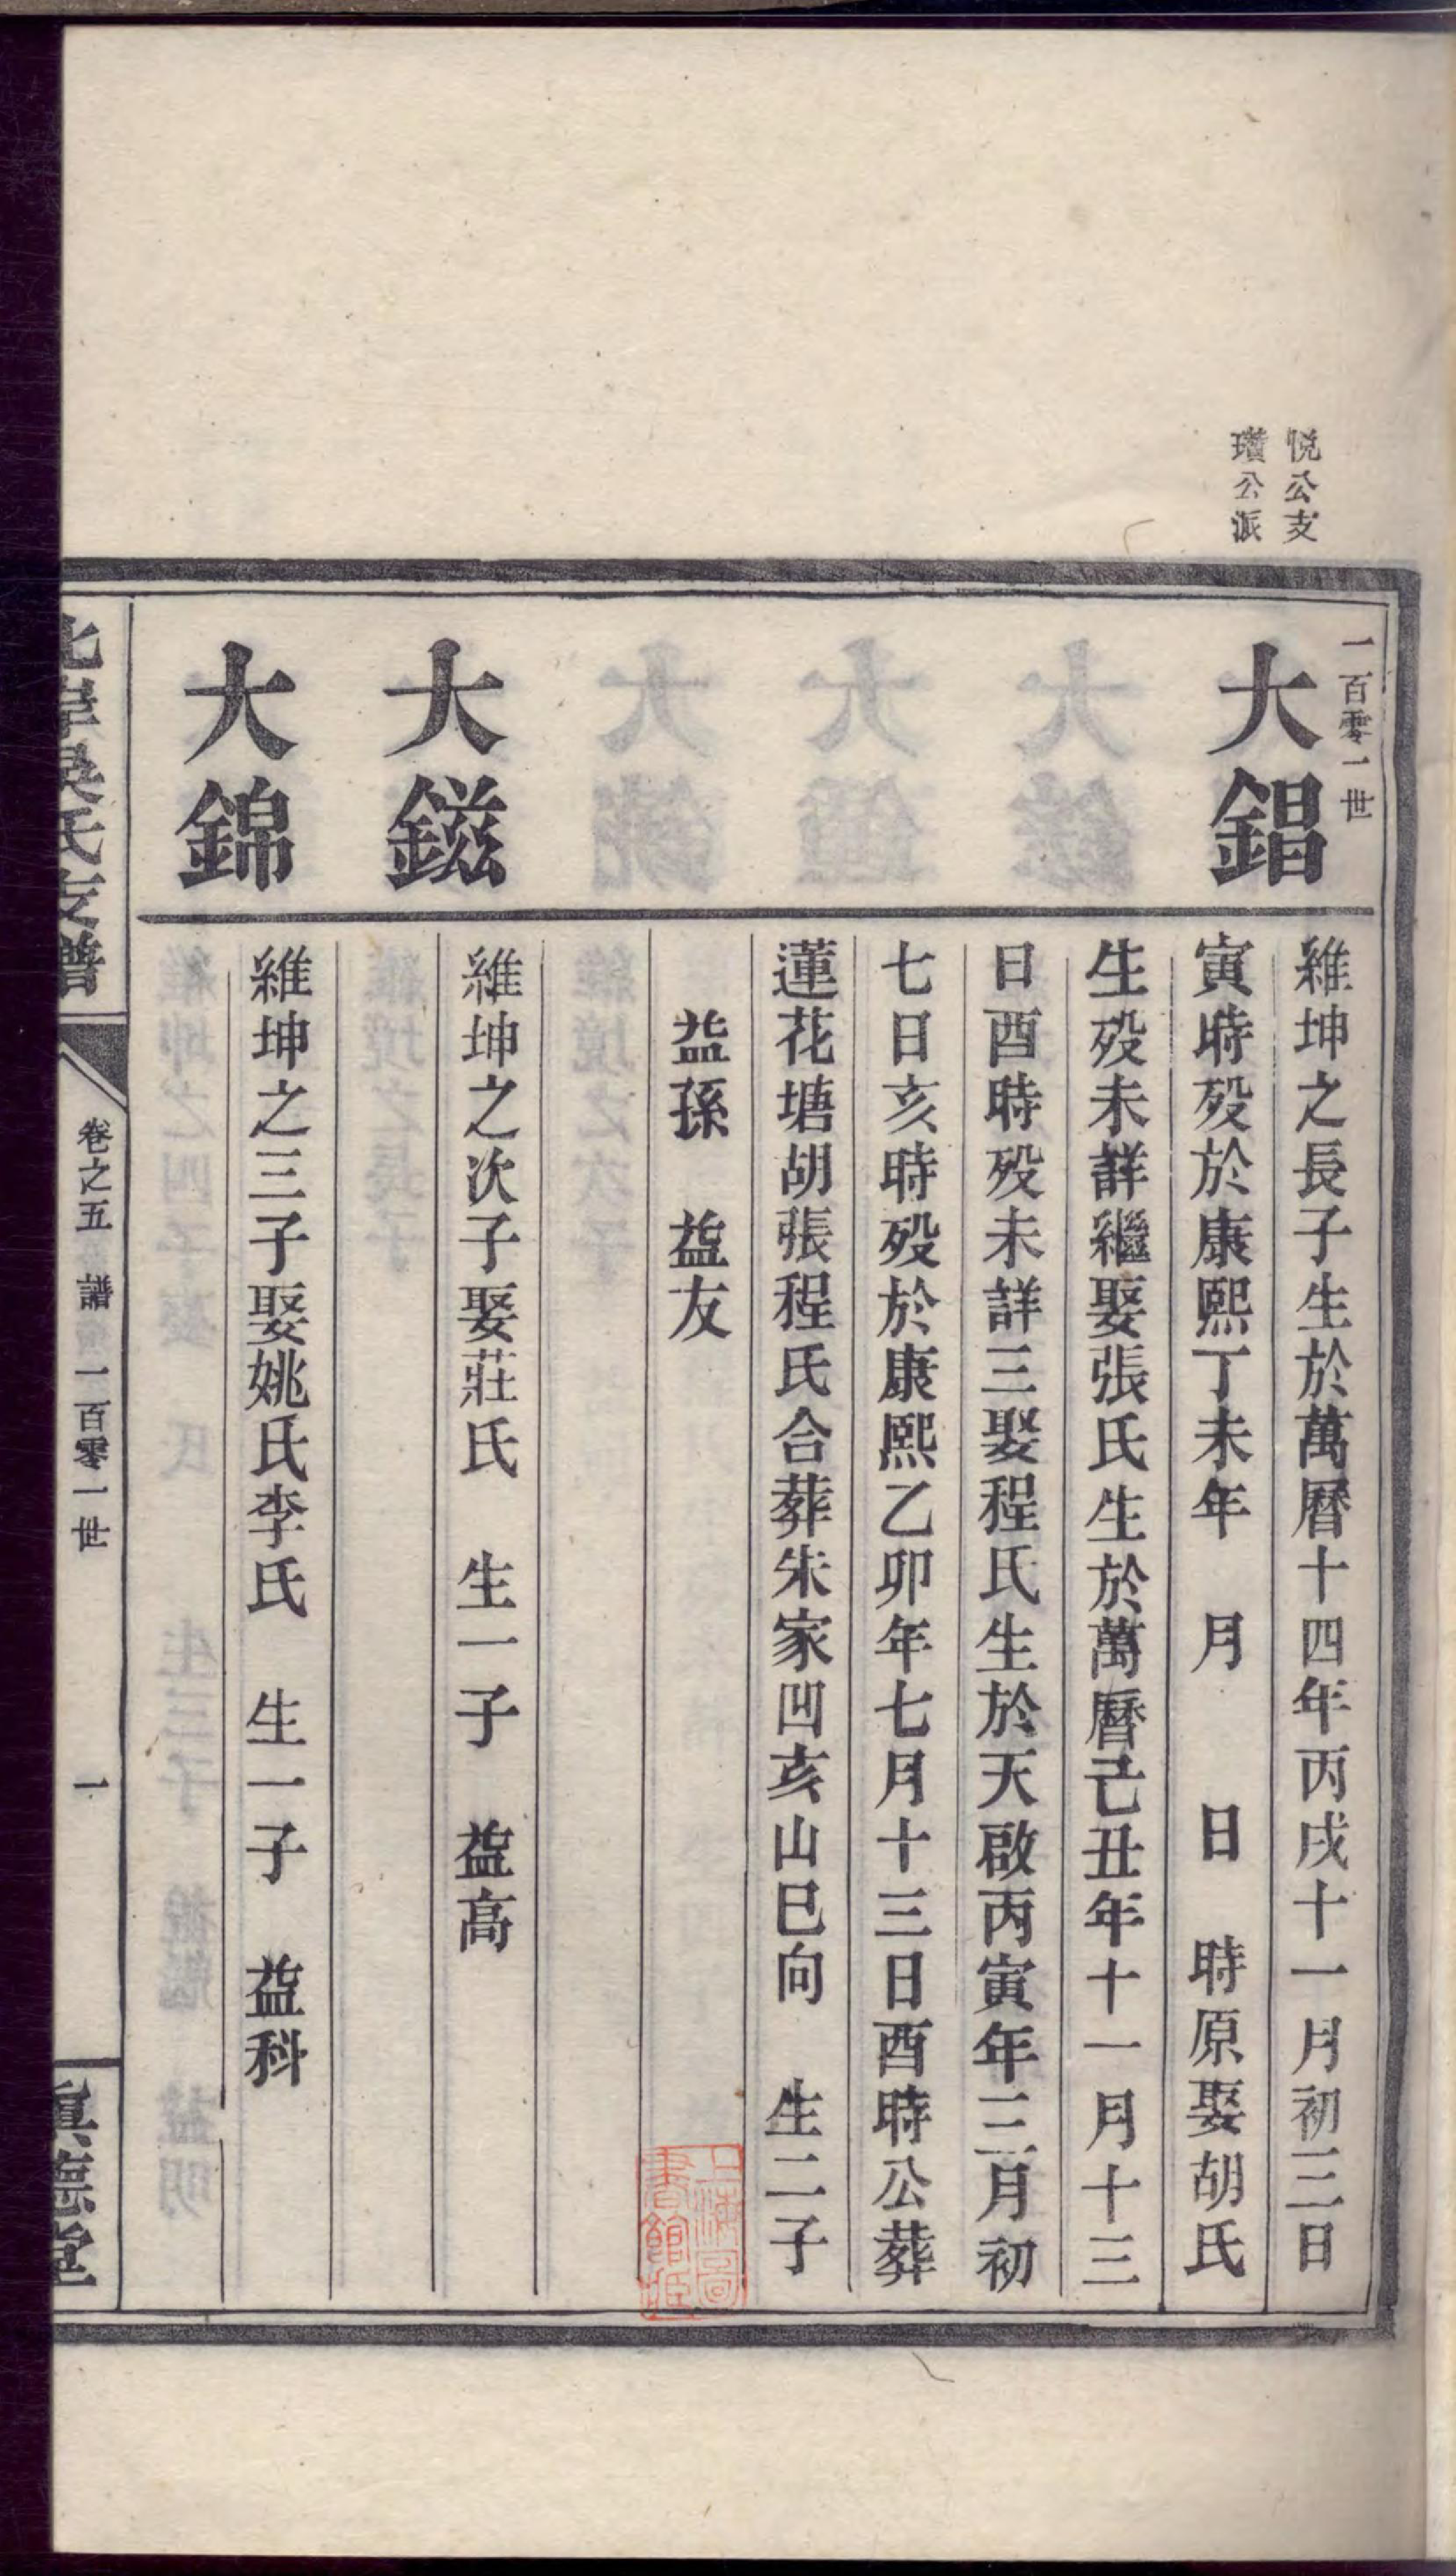 悅公支
瓚公派
一百零一世
大錩
維坤之長子生於萬曆十四年丙戌十一月初三日
寅時歿於康熙丁未年 月 日 時原娶胡氏
生歿未詳繼娶張氏生於萬曆己丑年十一月十三
日酉時歿未詳三娶程氏生於天啟丙寅年三月初
七日亥時歿於康熙乙卯年七月十三日酉時公葬
蓮花塘胡張程氏合葬朱家凹亥山巳向 生二子
益孫 益友
大鎡
維坤之次子娶莊氏 生一子 益高
大錦
維坤之三子娶姚氏李氏 生一子 益科
北岸吳氏支譜
卷之五 譜 一百零一世 一
眞德堂
上海圖
書館藏